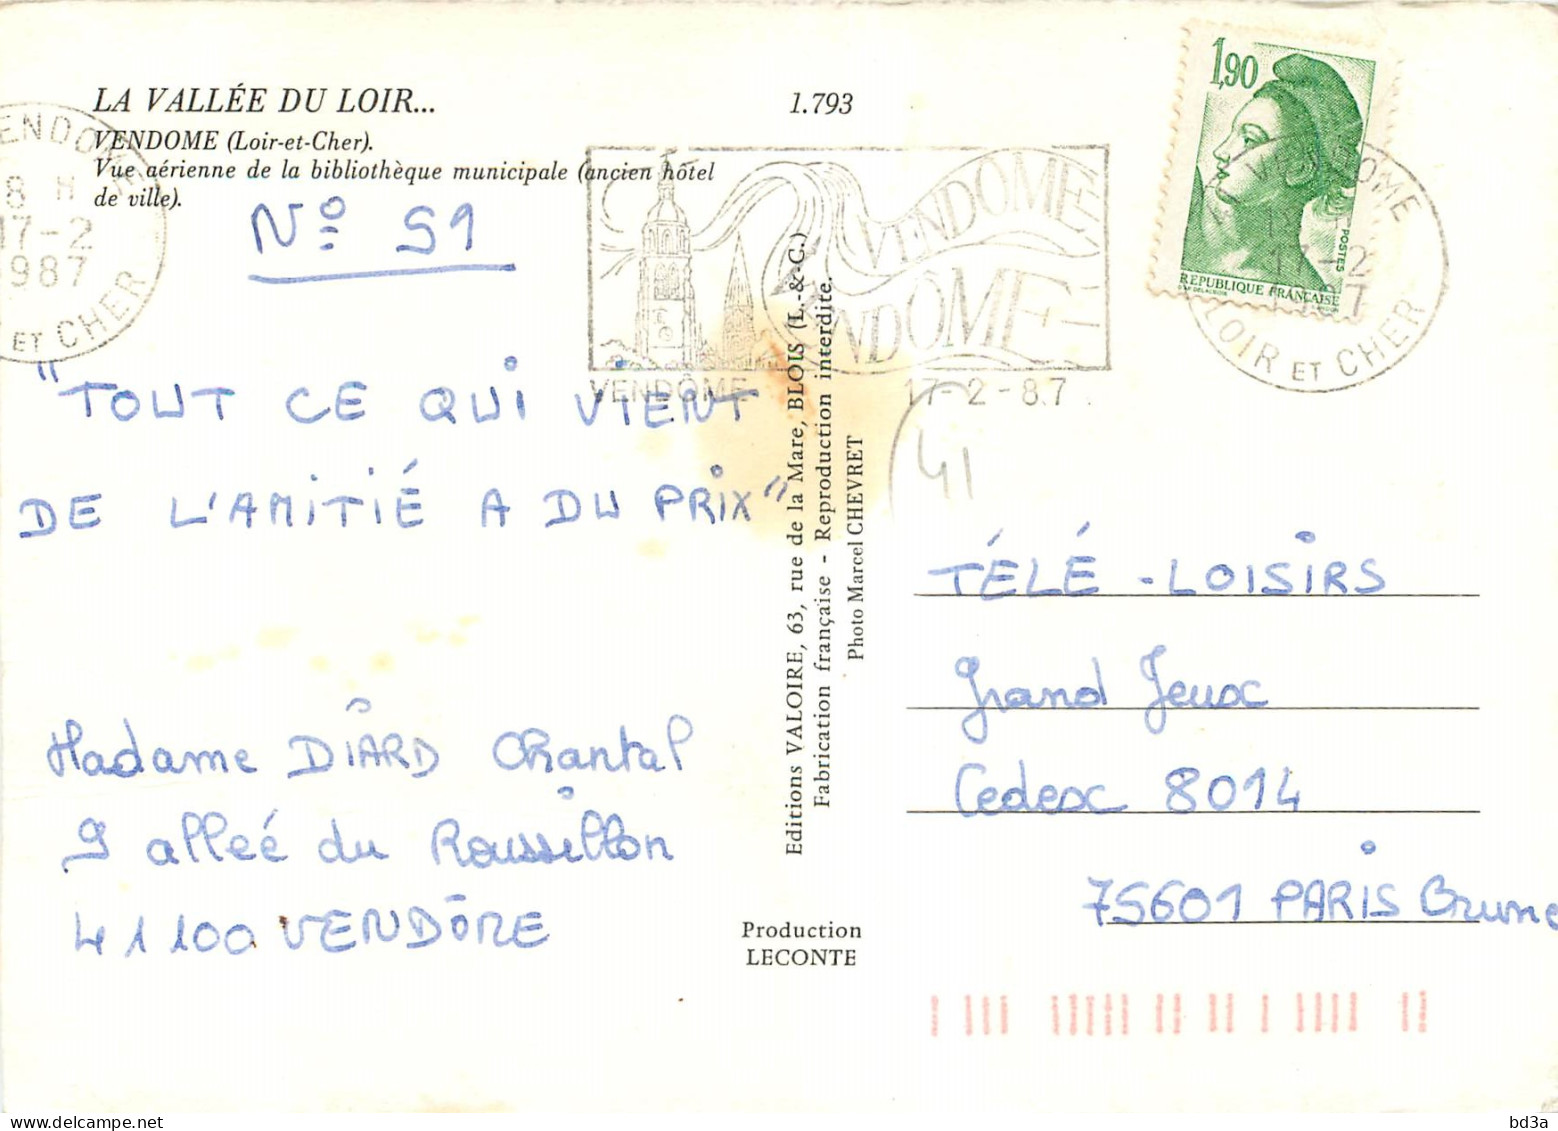 LA VALLÉE DU LOIR...
1.793
VENDOME (Loir-et-Cher).
Vue aérienne de la bibliothèque municipale (ancien hôtel
de ville).
1,90
POSTES
REPUBLIQUE FRANÇAISE
VENDOME
8 H
17-2
1987
LOIR ET CHER
VENDOME
VENDOME
VENDÔME
17-2-8.7
VENDOME
17-2
LOIR ET CHER
N° 51
"TOUT CE QUI VIENT
DE L'AMITIÉ A DU PRIX"
41
Madame DIARD Chantal
9 alleé du Roussillon
41100 VENDÔME
Editions VALOIRE, 63, rue de la Mare, BLOIS (L.-&-C.)
Fabrication française - Reproduction interdite.
Photo Marcel CHEVRET
Production
LECONTE
TÉLÉ-LOISIRS
Grand Jeux
Cedex 8014
75601 PARIS Brune
bd3a